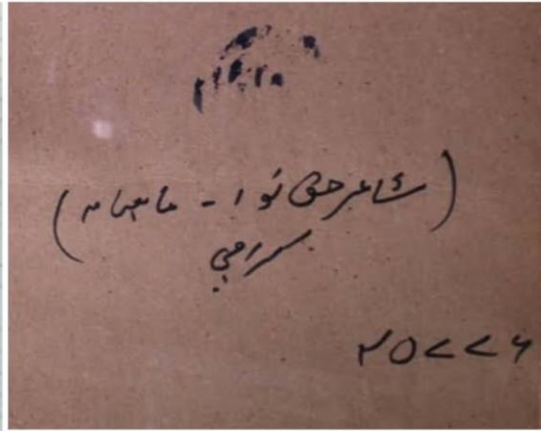 (شاعر حق نوا - ماہنامہ)
کراچی
۲۵۷۷۶